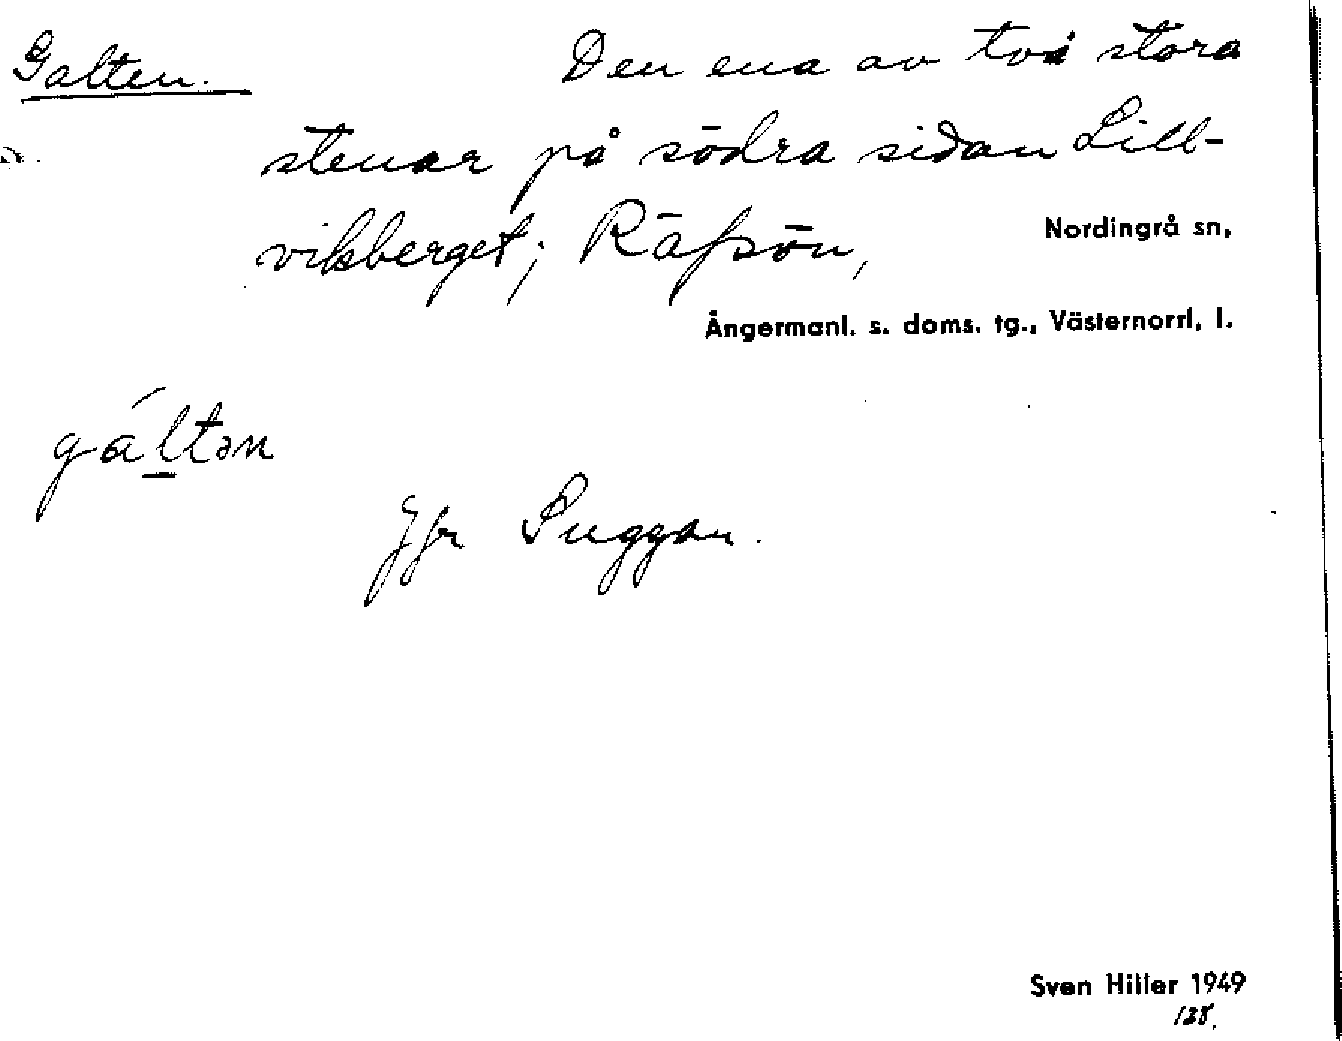 Galten. Den ena av två stora
stenar på södra sidan Lill-
viksberget; Räfsön, Nordingrå sn,
Ångermanl. s. doms. tg., Västernorrl. l.
gáltən
Jfr Suggan.
Sven Hiller 1949
128.